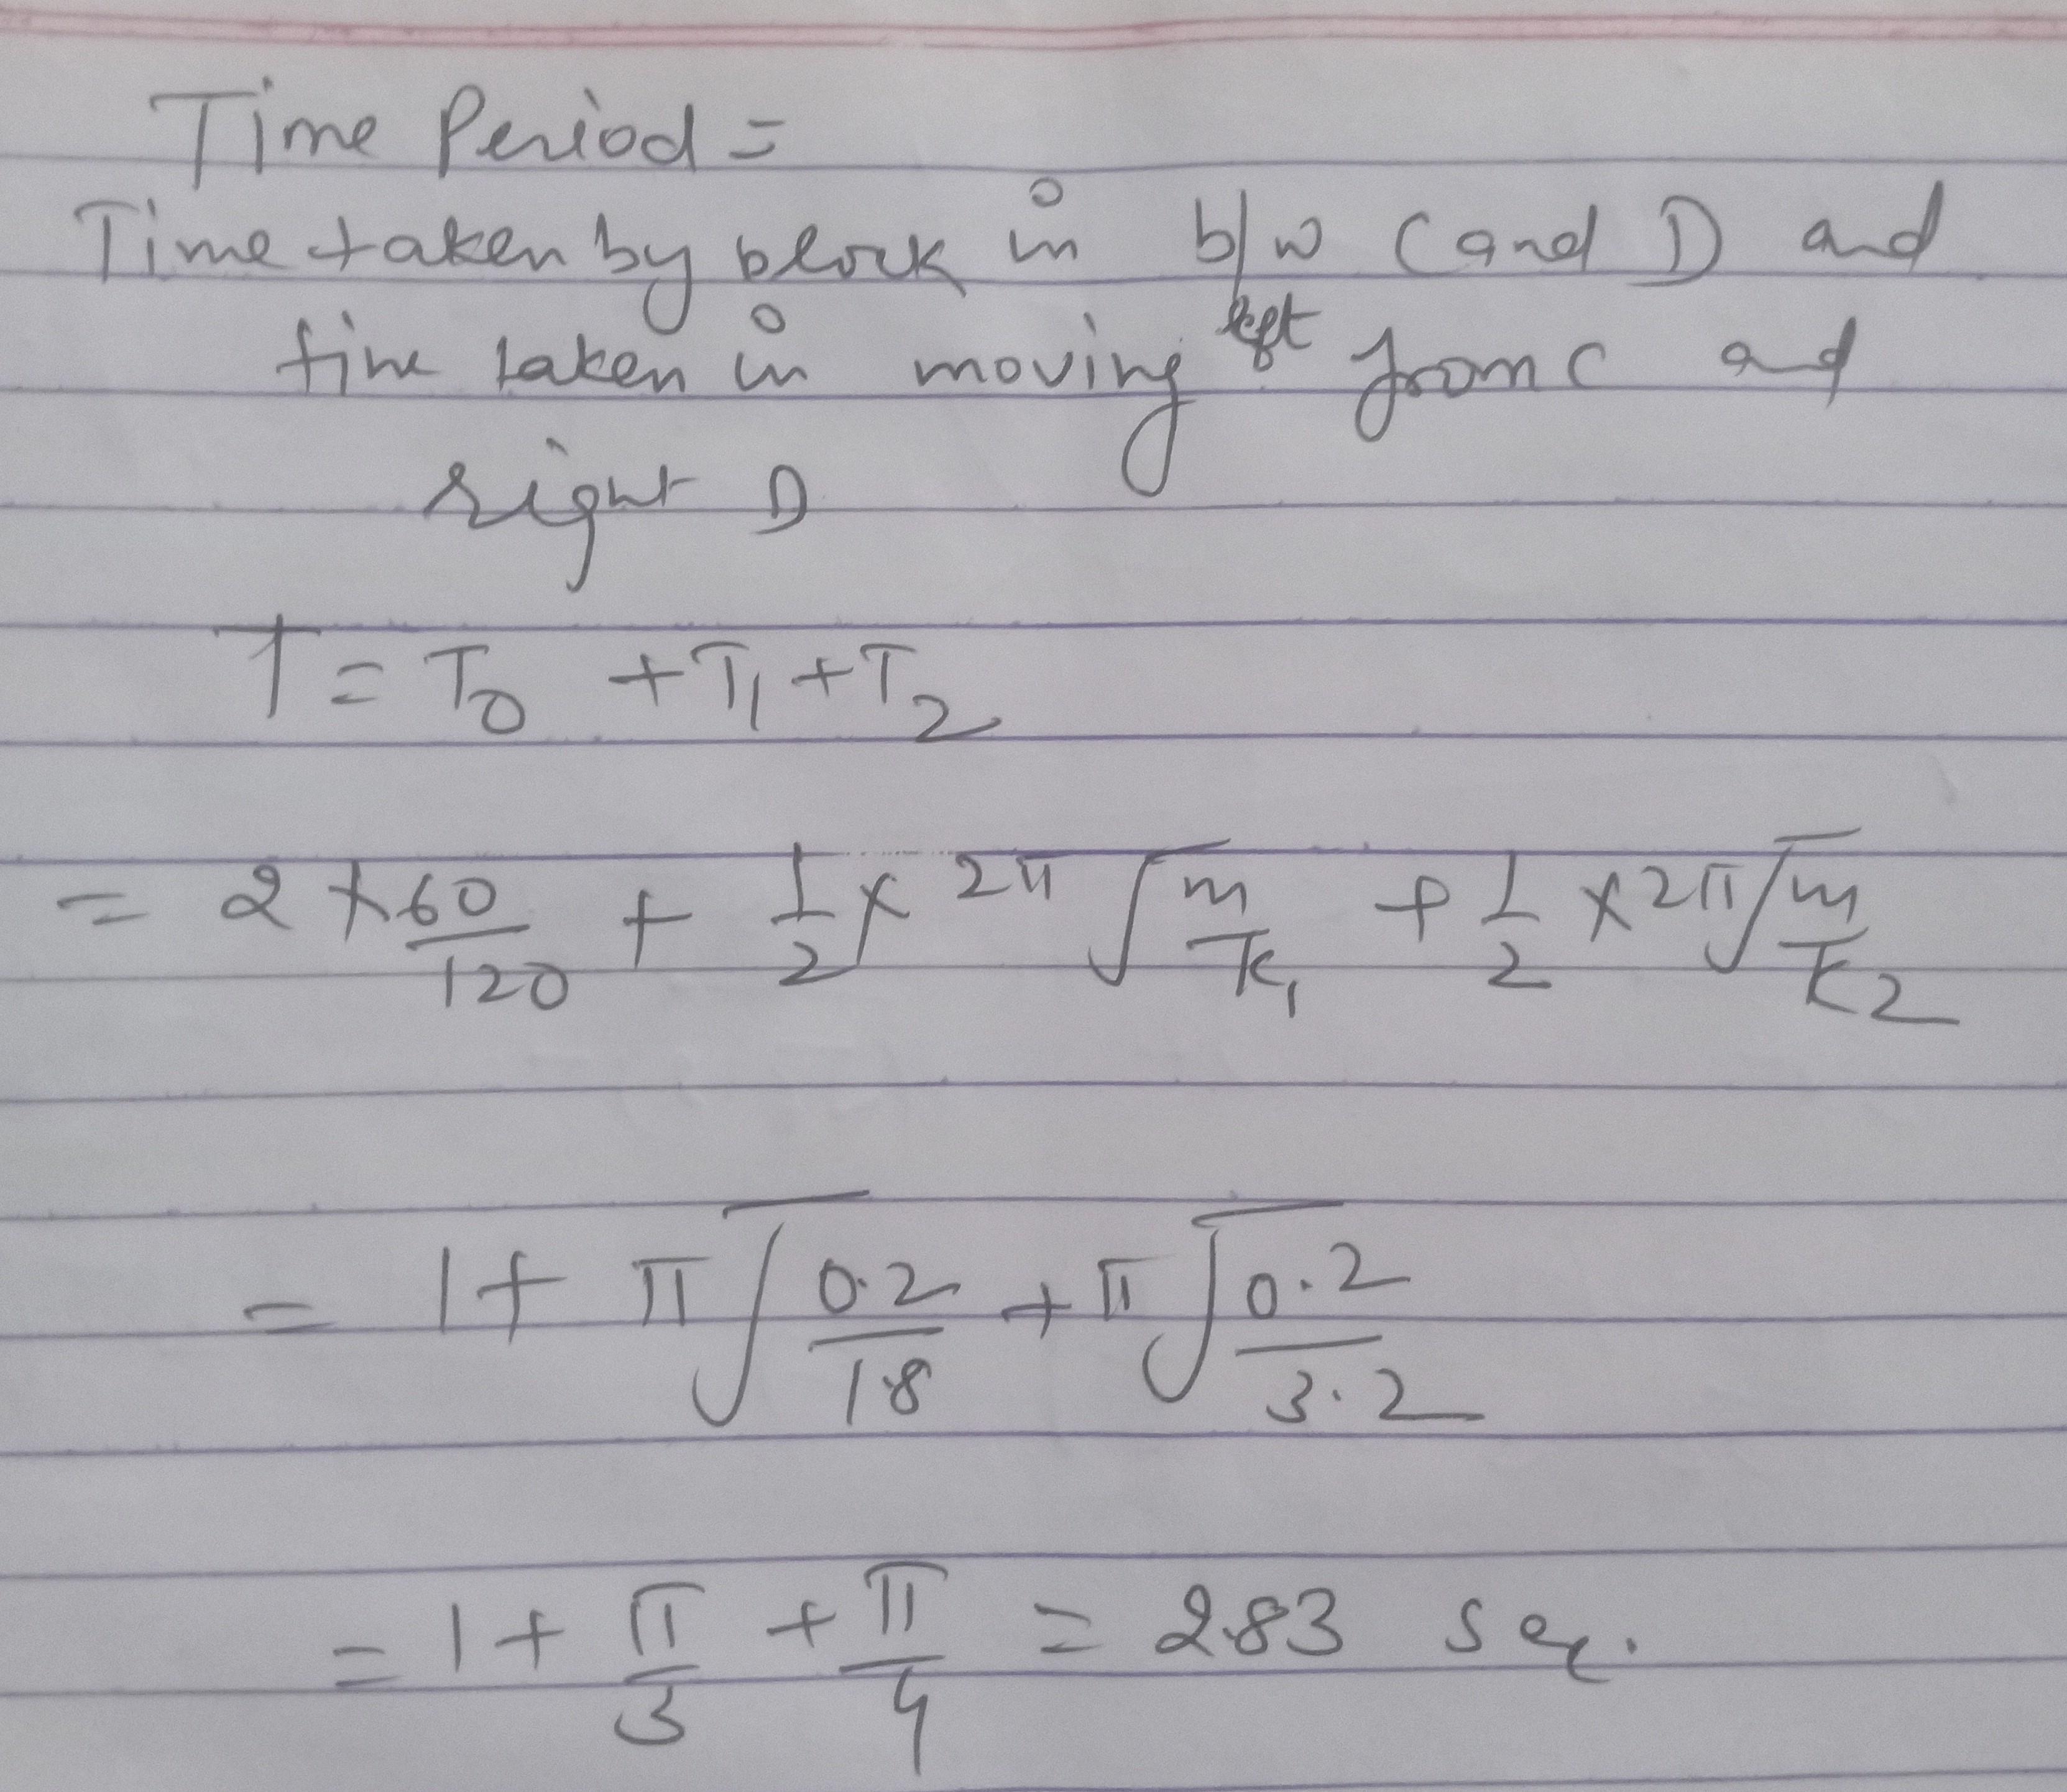 Time Period =
Time taken by block in b/w C and D and
time taken in moving left from C and
right D
T = T₀ + T₁ + T₂
= 2 × 60/120 + 1/2 × 2π √(m/k₁) + 1/2 × 2π √(m/k₂)
= 1 + π √(0.2/1.8) + π √(0.2/3.2)
= 1 + π/3 + π/4 = 2.83 sec.